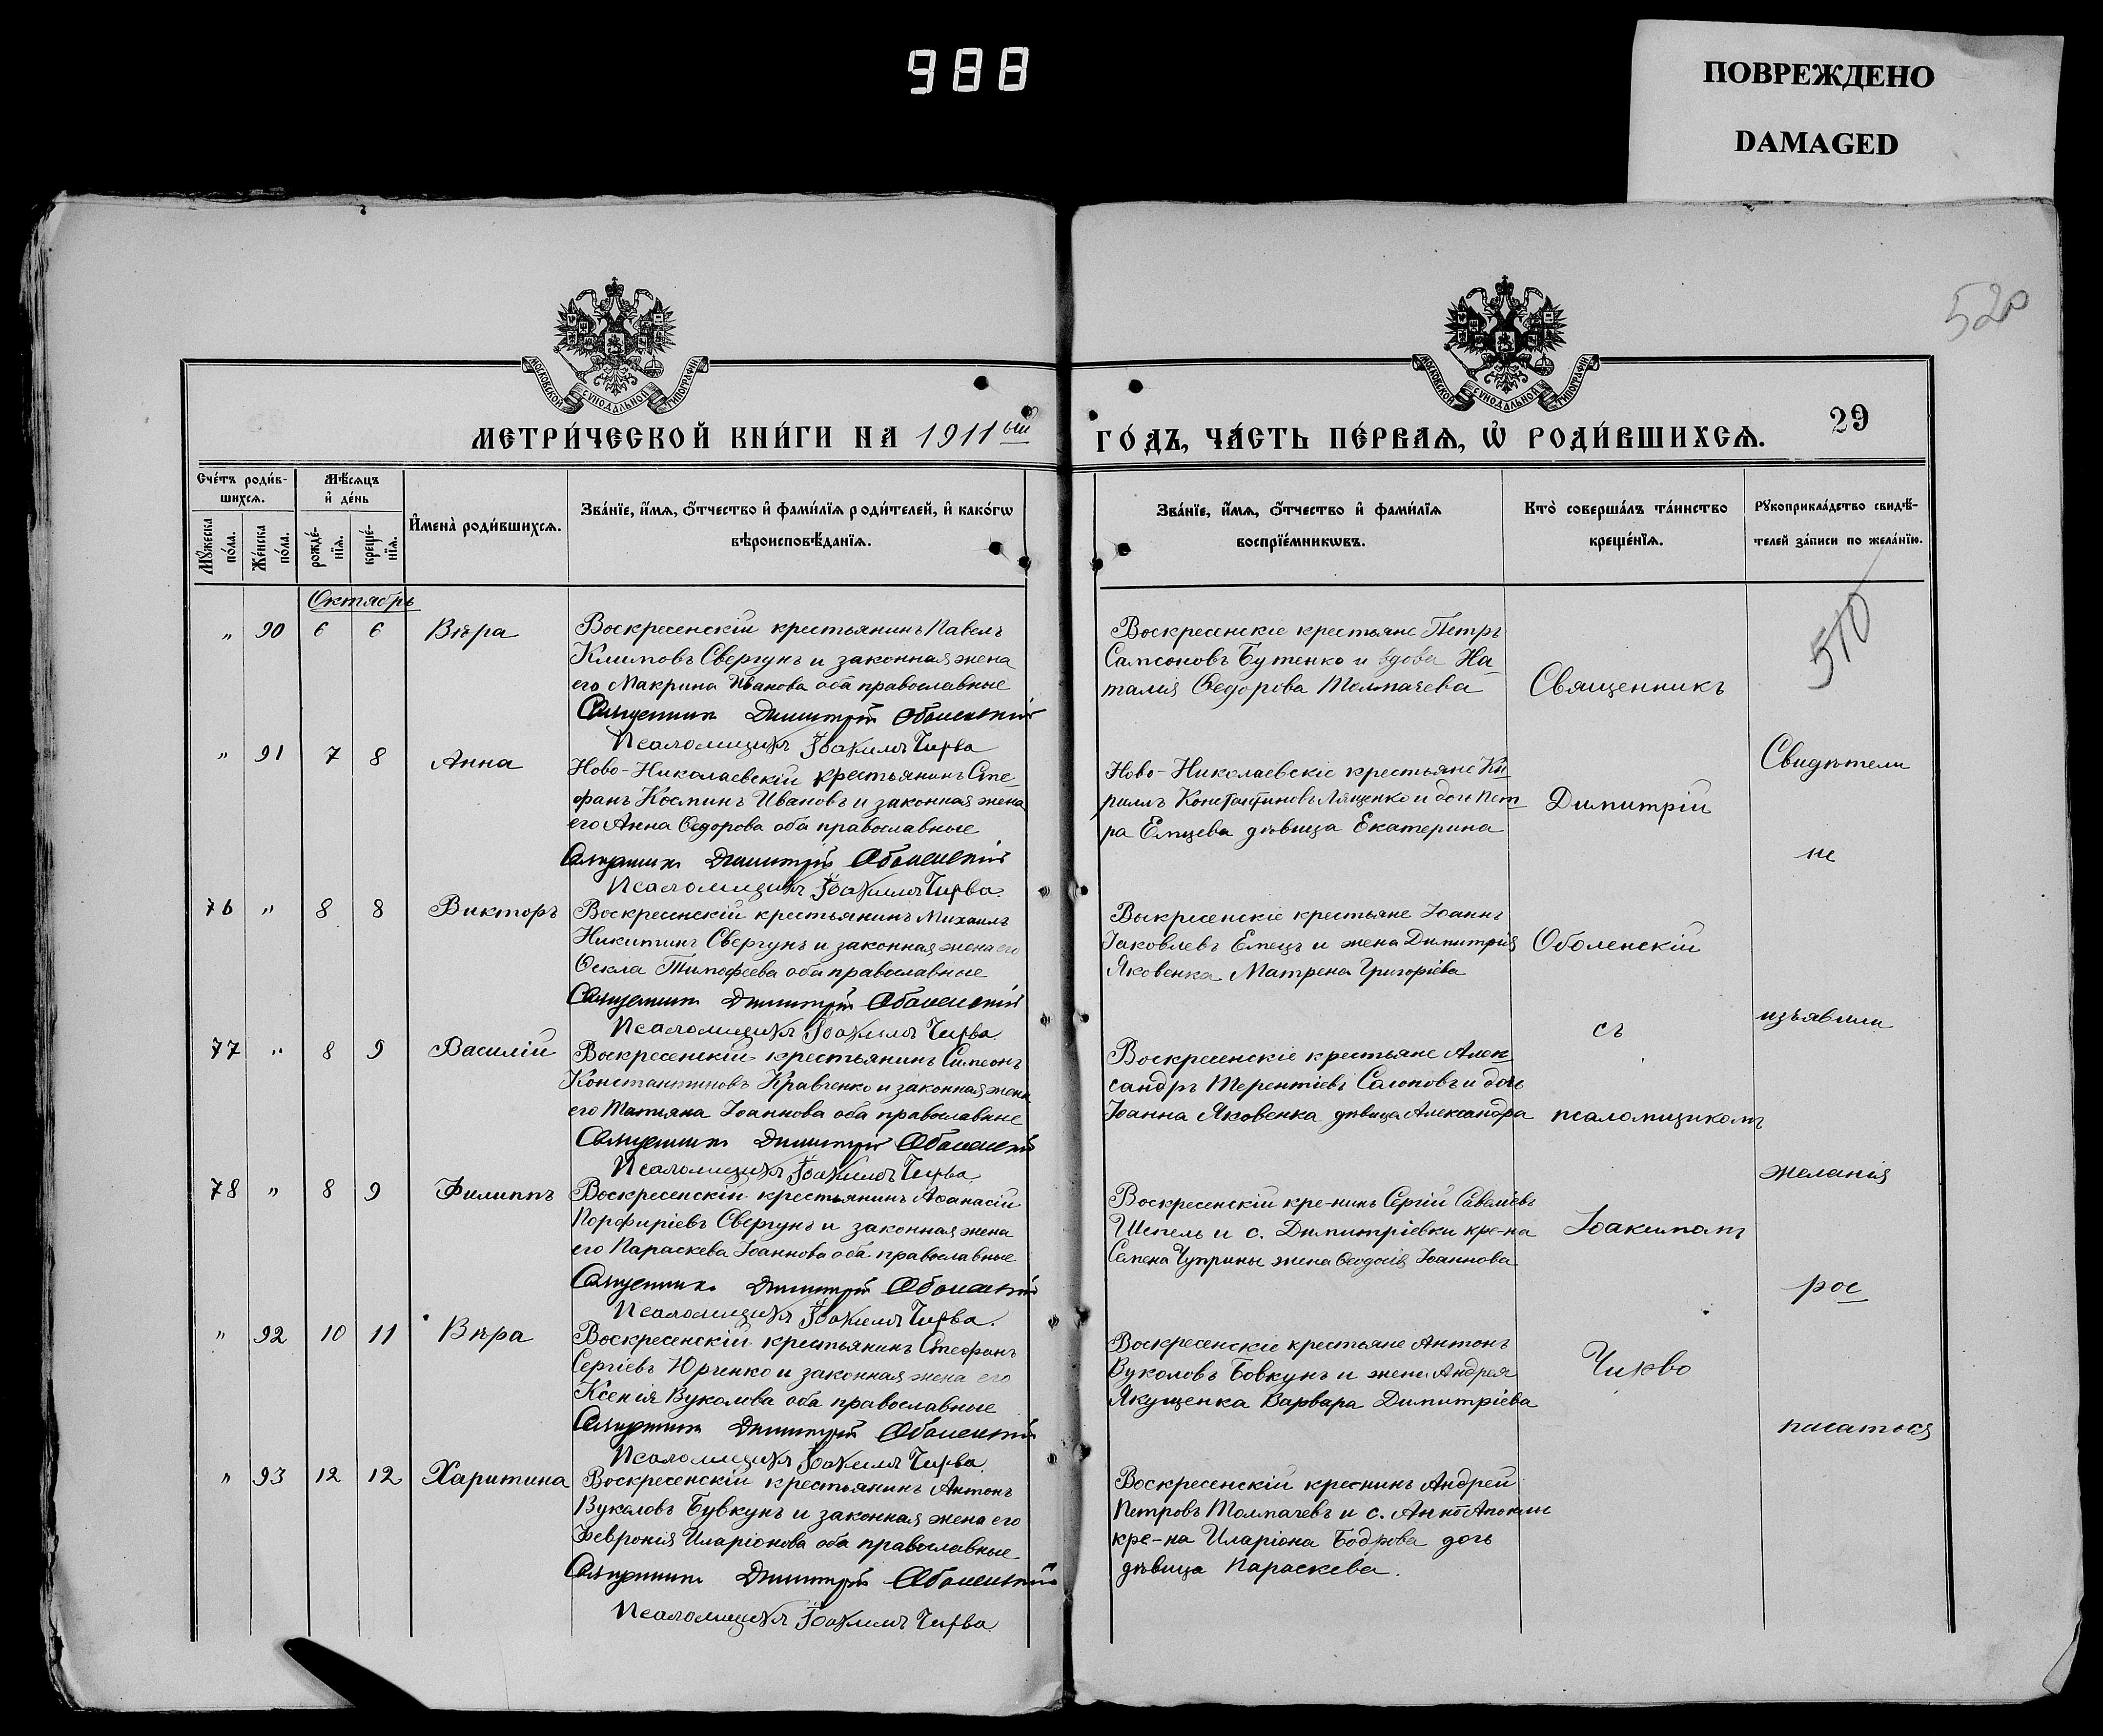 988
ПОВРЕЖДЕНО
DAMAGED
520
МОСКОВСКОЙ СѴНОДАЛЬНОЙ ТИПОГРАФІИ
МОСКОВСКОЙ СѴНОДАЛЬНОЙ ТИПОГРАФІИ
МЕТРИ́ЧЕСКОЙ КНИ́ГИ НА 1911ый
ГО́ДЪ, ЧА́СТЬ ПЕ́РВАѦ, Ѡ҆ РОДИ́ВШИХСѦ.
29
Сче́тъ роди́в-
шихсѧ.
Мѣ́сѧцъ
и҆ де́нь
Мꙋ́жеска
по́ла.
Же́нска
по́ла.
рожде́-
нїѧ.
креще́-
нїѧ.
И҆мена̀ роди́вшихсѧ.
Зва́нїе, и҆́мѧ, ѻ҆́тчество и҆ фами́лїѧ роди́телей, и҆ како́гѡ
вѣроисповѣ́данїѧ.
Зва́нїе, и҆́мѧ, ѻ҆́тчество и҆ фами́лїѧ
воспрїе́мникѡвъ.
Кто̀ соверша́лъ та́инство
креще́нїѧ.
Рꙋкоприкла́дство свидѣ́-
телей за́писи по жела́нїю.
Октябрь
" 90 6 6 Вѣра
Воскресенскій крестьянинъ Павелъ
Климовъ Свергунъ и законная жена
его Макрина Иванова оба православные
Священникъ Димитрій Оболенскій
Псаломщикъ Іоакимъ Чирва
Воскресенскіе крестьяне Петръ
Самсоновъ Бутенко и вдова На-
талія Ѳедорова Толмачева
" 91 7 8 Анна
Ново-Николаевскій крестьянинъ Сте-
фанъ Косминъ Ивановъ и законная жена
его Анна Ѳедорова оба православные
Священникъ Димитрій Оболенскій
Псаломщикъ Іоакимъ Чирва
Ново-Николаевскіе крестьяне Ки-
риллъ Константиновъ Лященко и дочь Пет-
ра Емцева дѣвица Екатерина
76 " 8 8 Викторъ
Воскресенскій крестьянинъ Михаилъ
Никитинъ Свергунъ и законная жена его
Ѳекла Тимофеева оба православные
Священникъ Димитрій Оболенскій
Псаломщикъ Іоакимъ Чирва
Воскресенскіе крестьяне Іоаннъ
Іаковлевъ Емецъ и жена Димитрія
Яковенка Матрена Григоріева
77 " 8 9 Василій
Воскресенскій крестьянинъ Симеонъ
Константиновъ Кравченко и законная жена
его Татьяна Іоаннова оба православные
Священникъ Димитрій Оболенскій
Псаломщикъ Іоакимъ Чирва
Воскресенскіе крестьяне Алек-
сандръ Терентіевъ Сагоновъ и дочь
Іоанна Яковенка дѣвица Александра
78 " 8 9 Филиппъ
Воскресенскій крестьянинъ Аѳанасій
Порфиріевъ Свергунъ и законная жена
его Параскева Іоаннова оба православные
Священникъ Димитрій Оболенскій
Псаломщикъ Іоакимъ Чирва.
Воскресенскій кре-нинъ Сергій Савеліевъ
Шепель и с. Димитріевки кре-на
Семена Чуприны жена Ѳеодосія Іоаннова
" 92 10 11 Вѣра
Воскресенскій крестьянинъ Стефанъ
Сергіевъ Юрченко и законная жена его
Ксенія Вуколова оба православные
Священникъ Димитрій Оболенскій
Псаломщикъ Іоакимъ Чирва.
Воскресенскіе крестьяне Антонъ
Вуколовъ Бовкунъ и жена Андрея
Якущенка Варвара Димитріева
" 93 12 12 Харитина
Воскресенскій крестьянинъ Антонъ
Вуколовъ Бувкунъ и законная жена его
Февронія Иларіонова оба православные.
Священникъ Димитрій Оболенскій
Псаломщикъ Іоакимъ Чирва
Воскресенскій креснинъ Андрей
Петровъ Толмачевъ и с.
кре-на Иларіона Бодрова дочь
дѣвица Параскева.
Священникъ
Димитрій
Оболенскій
съ
псаломщикомъ
Іоакимомъ
Чирво
510
Свидѣтели
не
изъявили
желанія
рос
писаться